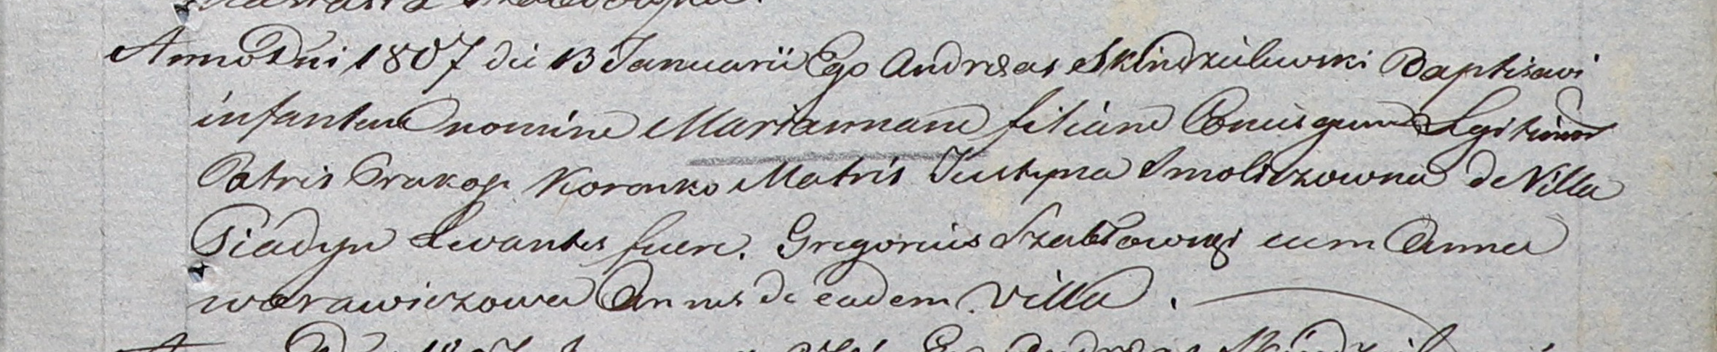 Anno Dni 1807 die 13 Januarii Ego Andreas Skindzielewski Baptisavi
infantem nomine Mariannam filiam Coniugum Legitimor
Patris Prakop Koronko Matris Justyna Smoliczowna de Villa
Piadyn Levantes fuere. Gregorius Szabłowski cum Anna
worawiczowa omnes de eadem Villa.
Anno Dni 1807 Ego Andreas